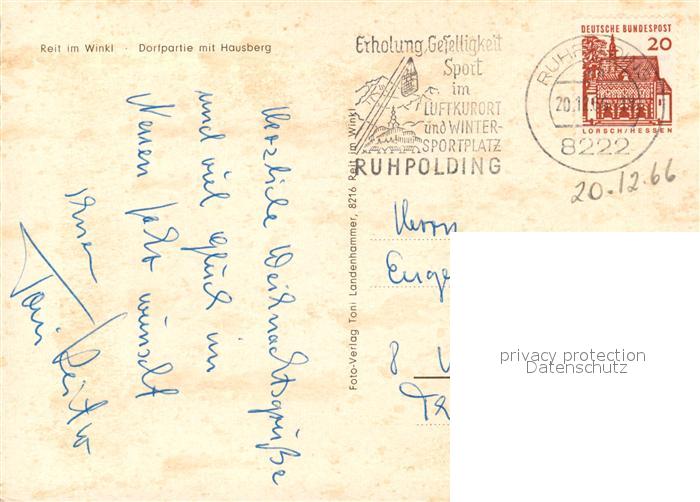 Reit im Winkl · Dorfpartie mit Hausberg
Herzliche Weihnachtsgrüße
und viel Glück im
Neuen Jahr wünscht
Ihnen
Toni
Foto-Verlag Toni Landenhammer, 8216 Reit im Winkl
Erholung, Geselligkeit
Sport
im
LUFTKURORT
und WINTER-
SPORTPLATZ
RUHPOLDING
DEUTSCHE BUNDESPOST
20
LORSCH/HESSEN
8222
20.12.66
Herrn
Euge
8
privacy protection
Datenschutz